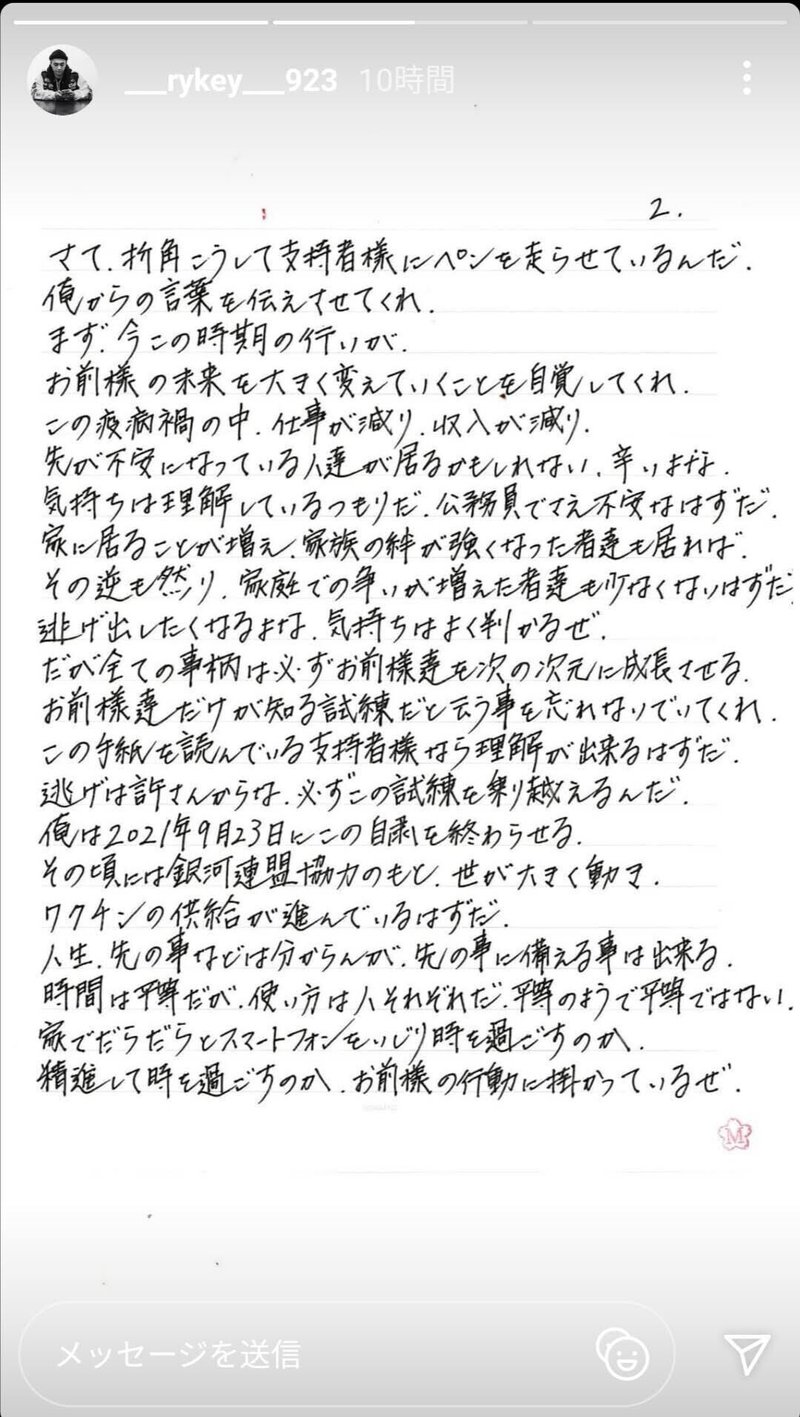 ___rykey___923 10時間
2.
さて、折角こうして支持者様にペンを走らせているんだ、
俺からの言葉を伝えさせてくれ、
まず、今この時期の行いが、
お前様の未来を大きく変えていくことを自覚してくれ、
この疫病禍の中、仕事が減り、収入が減り、
先が不安になっている人達が居るかもしれない、辛いよな、
気持ちは理解しているつもりだ、公務員でさえ不安なはずだ、
家に居ることが増え、家族の絆が強くなった者達も居れば、
その逆も然り、家庭での争いが増えた者達も少なくないはずだ
逃げ出したくなるよな、気持ちはよく判かるぜ、
だが全ての事柄は必ずお前様達を次の次元に成長させる、
お前様達だけが知る試練だと云う事を忘れないでいてくれ、
この手紙を読んでいる支持者様なら理解が出来るはずだ、
逃げは許さんからな、必ずこの試練を乗り越えるんだ、
俺は2021年9月23日にこの自粛を終わらせる、
その頃には銀河連盟協力のもと、世が大きく動き、
ワクチンの供給が進んでいるはずだ、
人生、先の事などは分からんが、先の事に備える事は出来る、
時間は平等だが、使い方は人それぞれだ、平等のようで平等ではない、
家でだらだらとスマートフォンをいじり時を過ごすのか、
精進して時を過ごすのか、お前様の行動に掛かっているぜ、
M
メッセージを送信